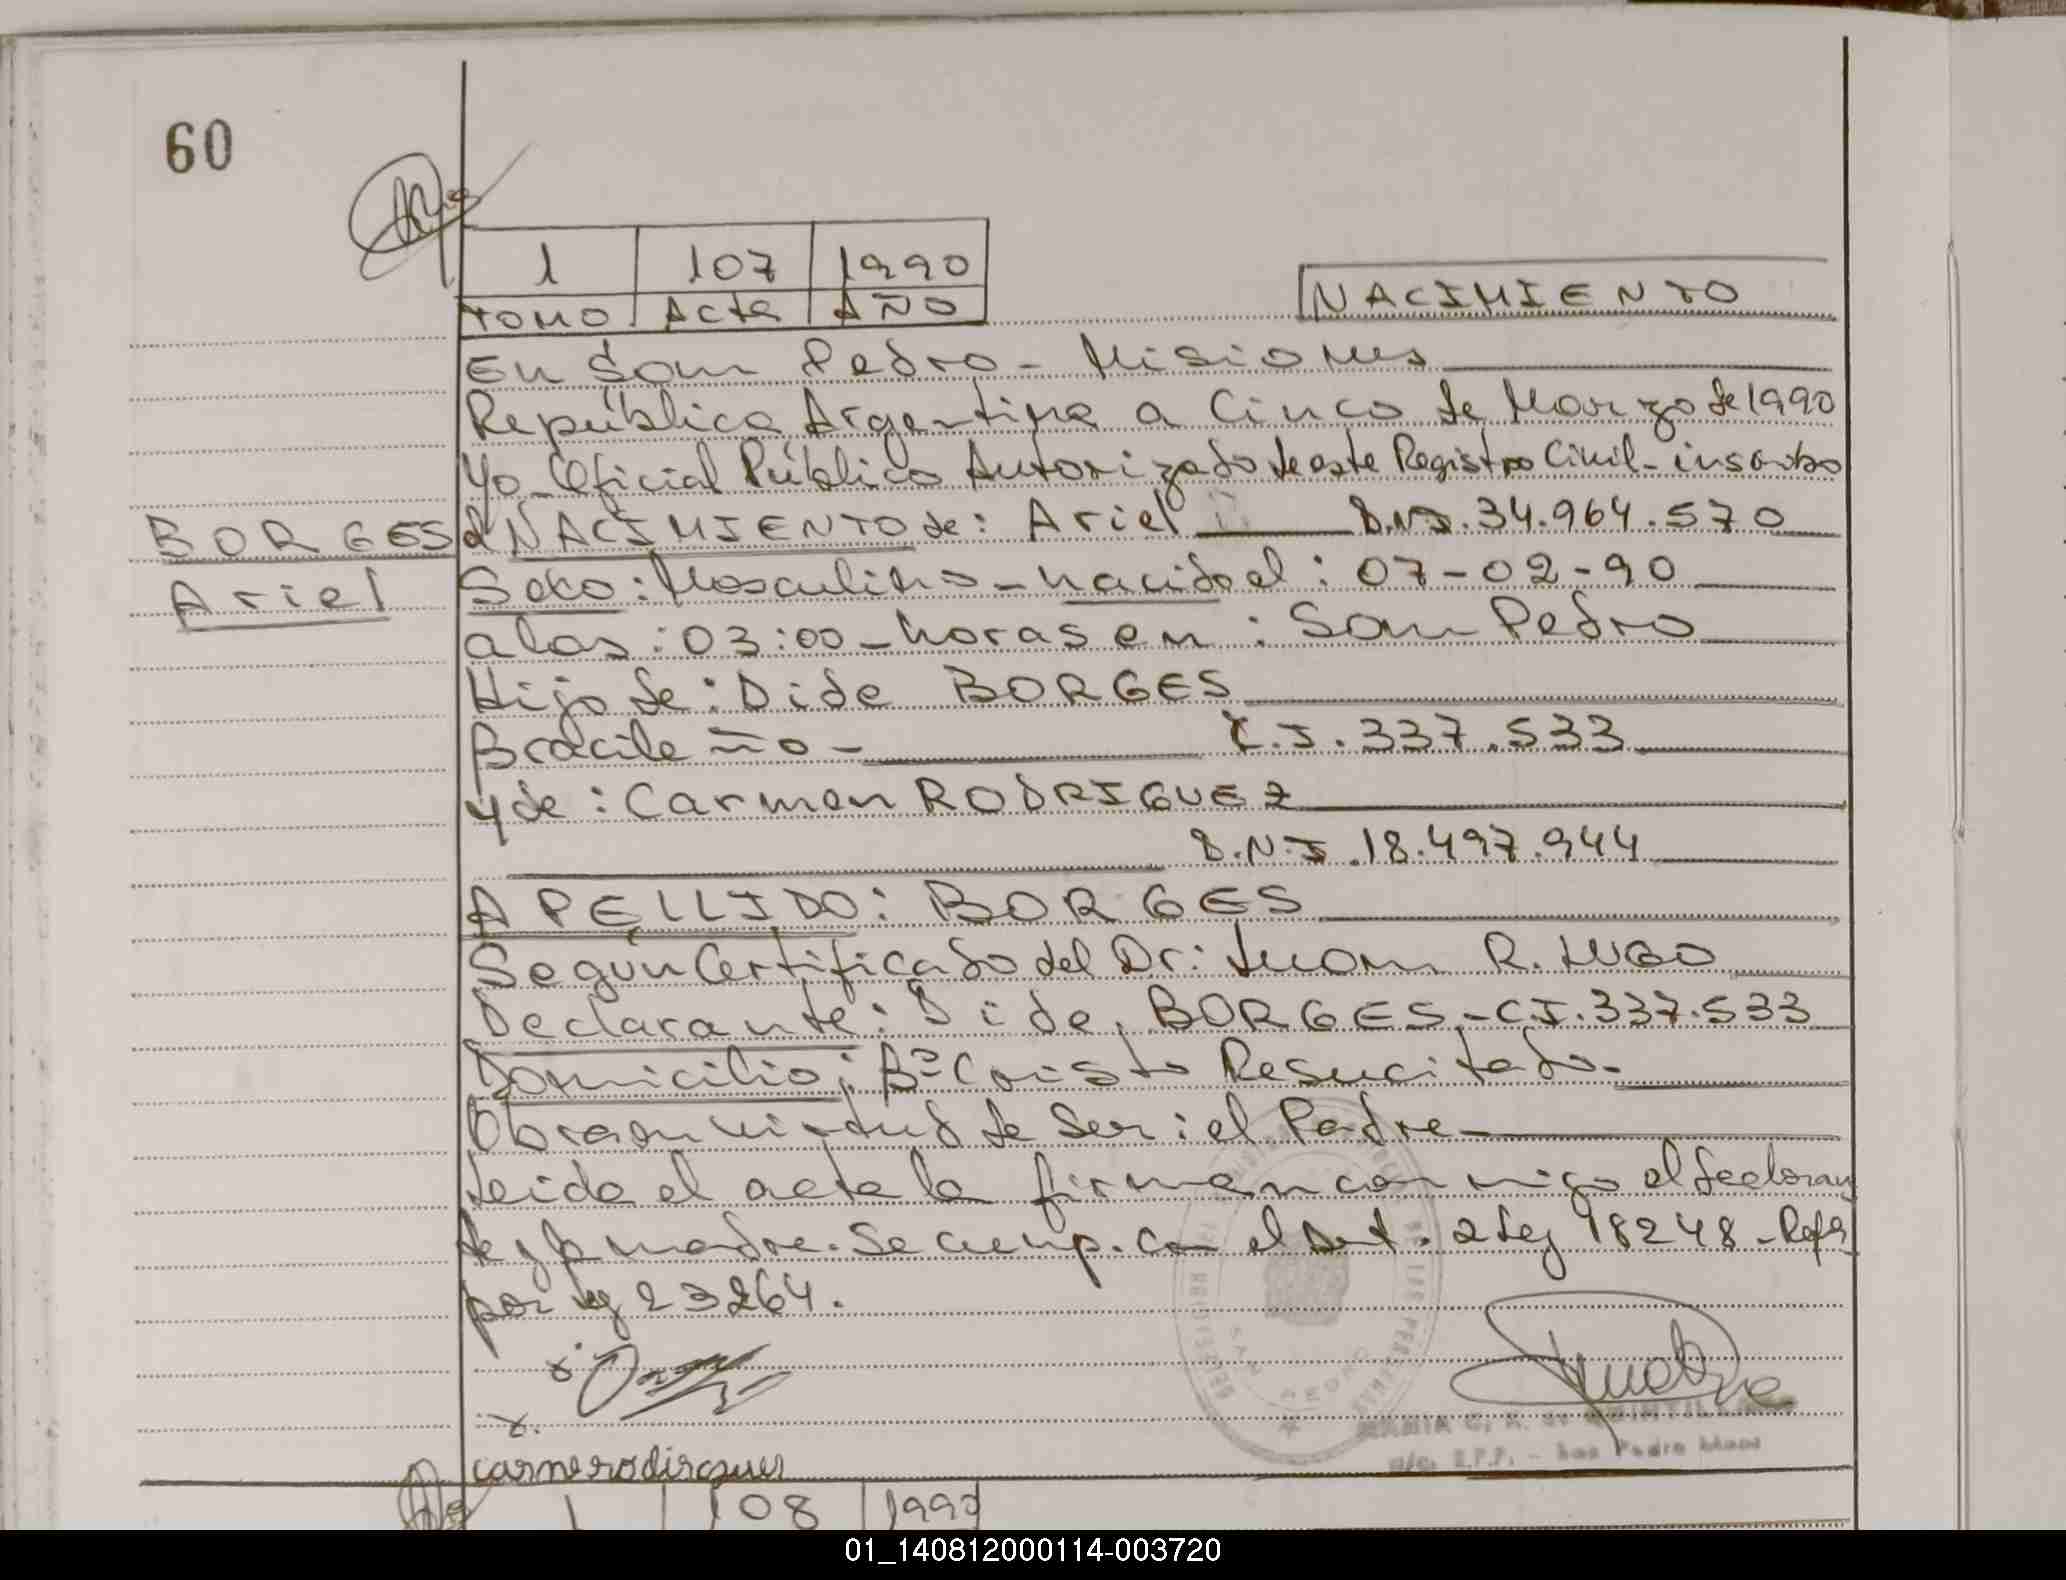 60
1 107 1990
TOMO Acta AÑO
NACIMIENTO
En San Pedro - Misiones
República Argentina a Cinco de Marzo de 1990
Yo Oficial Público Autorizado de este Registro Civil - inscribo
BORGES
Ariel
el NACIMIENTO de: Ariel D.N.I. 34.964.570
Sexo: Masculino - nacido el: 07-02-90
a las: 03:00 - horas en: San Pedro
Hijo de: Dide BORGES
Bracileño - C.I. 337.533
y de: Carmen RODRIGUEZ
D.N.I. 18.497.944
APELLIDO: BORGES
Según Certificado del Dr: Juan R. LUGO
Declarante: Dide BORGES - C.I. 337.533
Domicilio: Bº Cristo Resucitado -
Obra en virtud de Ser: el Padre -
Leida el acta la firman conmigo el declaran
te y la madre. Se cump. con el Art. 2 Ley 18248 - Refr
por ley 23264.
x.
x.
carmerodirgues
SAN PEDRO
MARIA G. A. de QUINTILLAN
a/c. R.P.P. - San Pedro Mnes
1 108 1990
01_140812000114-003720